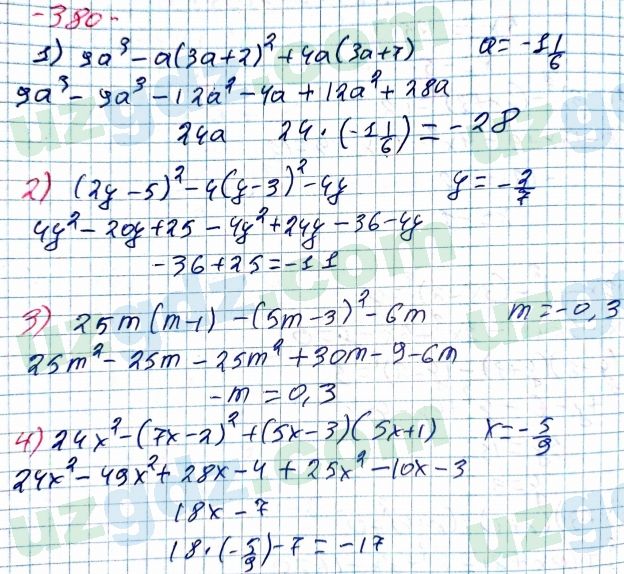 -380-
1) 9a³ - a(3a+2)² + 4a(3a+7) a = -1 1/6
9a³ - 9a³ - 12a² - 4a + 12a² + 28a
24a 24 · (-1 1/6) = -28
2) (2y - 5)² - 4(y - 3)² - 4y y = -2/7
4y² - 20y + 25 - 4y² + 24y - 36 - 4y
-36 + 25 = -11
3) 25m(m-1) - (5m-3)² - 6m m = -0,3
25m² - 25m - 25m² + 30m - 9 - 6m
-m = 0,3
4) 24x² - (7x-2)² + (5x-3)(5x+1) x = -5/9
24x² - 49x² + 28x - 4 + 25x² - 10x - 3
18x - 7
18 · (-5/9) - 7 = -17
uzgdz.com